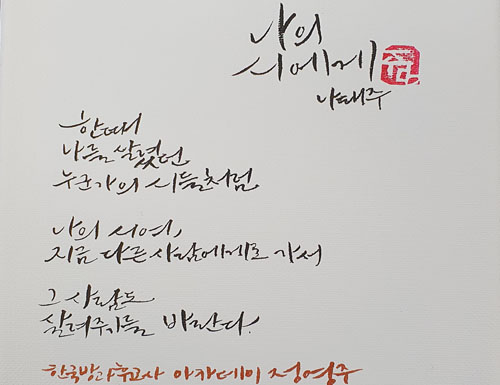 나의
시에게
나태주
한때
나를 살렸던
누군가의 시들처럼
나의 시여,
지금 다른 사람에게로 가서
그 사람도
살려주기를 바란다!
한국방과후교사 아카데미 정영주